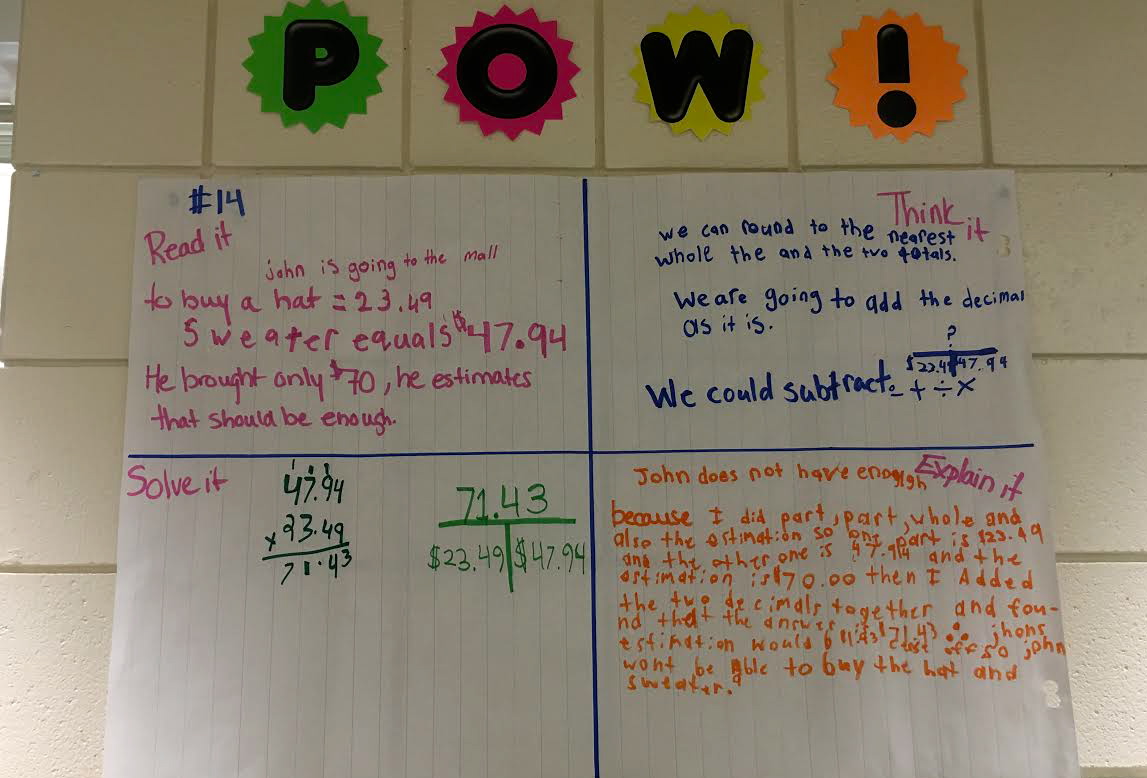 POW!
#14
Read it
john is going to the mall
to buy a hat = 23.49
Sweater equals $47.94
He brought only $70, he estimates
that should be enough.
Think it
we can round to the nearest
whole the and the two totals.
We are going to add the decimal
as it is.
?
$23.49 47.94
We could subtract - + ÷ ×
Solve it
47.94
× 23.49
71.43
71.43
$23.49 $47.94
Explain it
John does not have enough
because I did part, part, whole and
also the estimation so one part is $23.49
and the other one is 47.94 and the
estimation is $70.00 then I Added
the two decimals together and fou-
nd that the answer is 71.43 jhons
estimation would close off so john
wont be Able to buy the hat and
sweater.